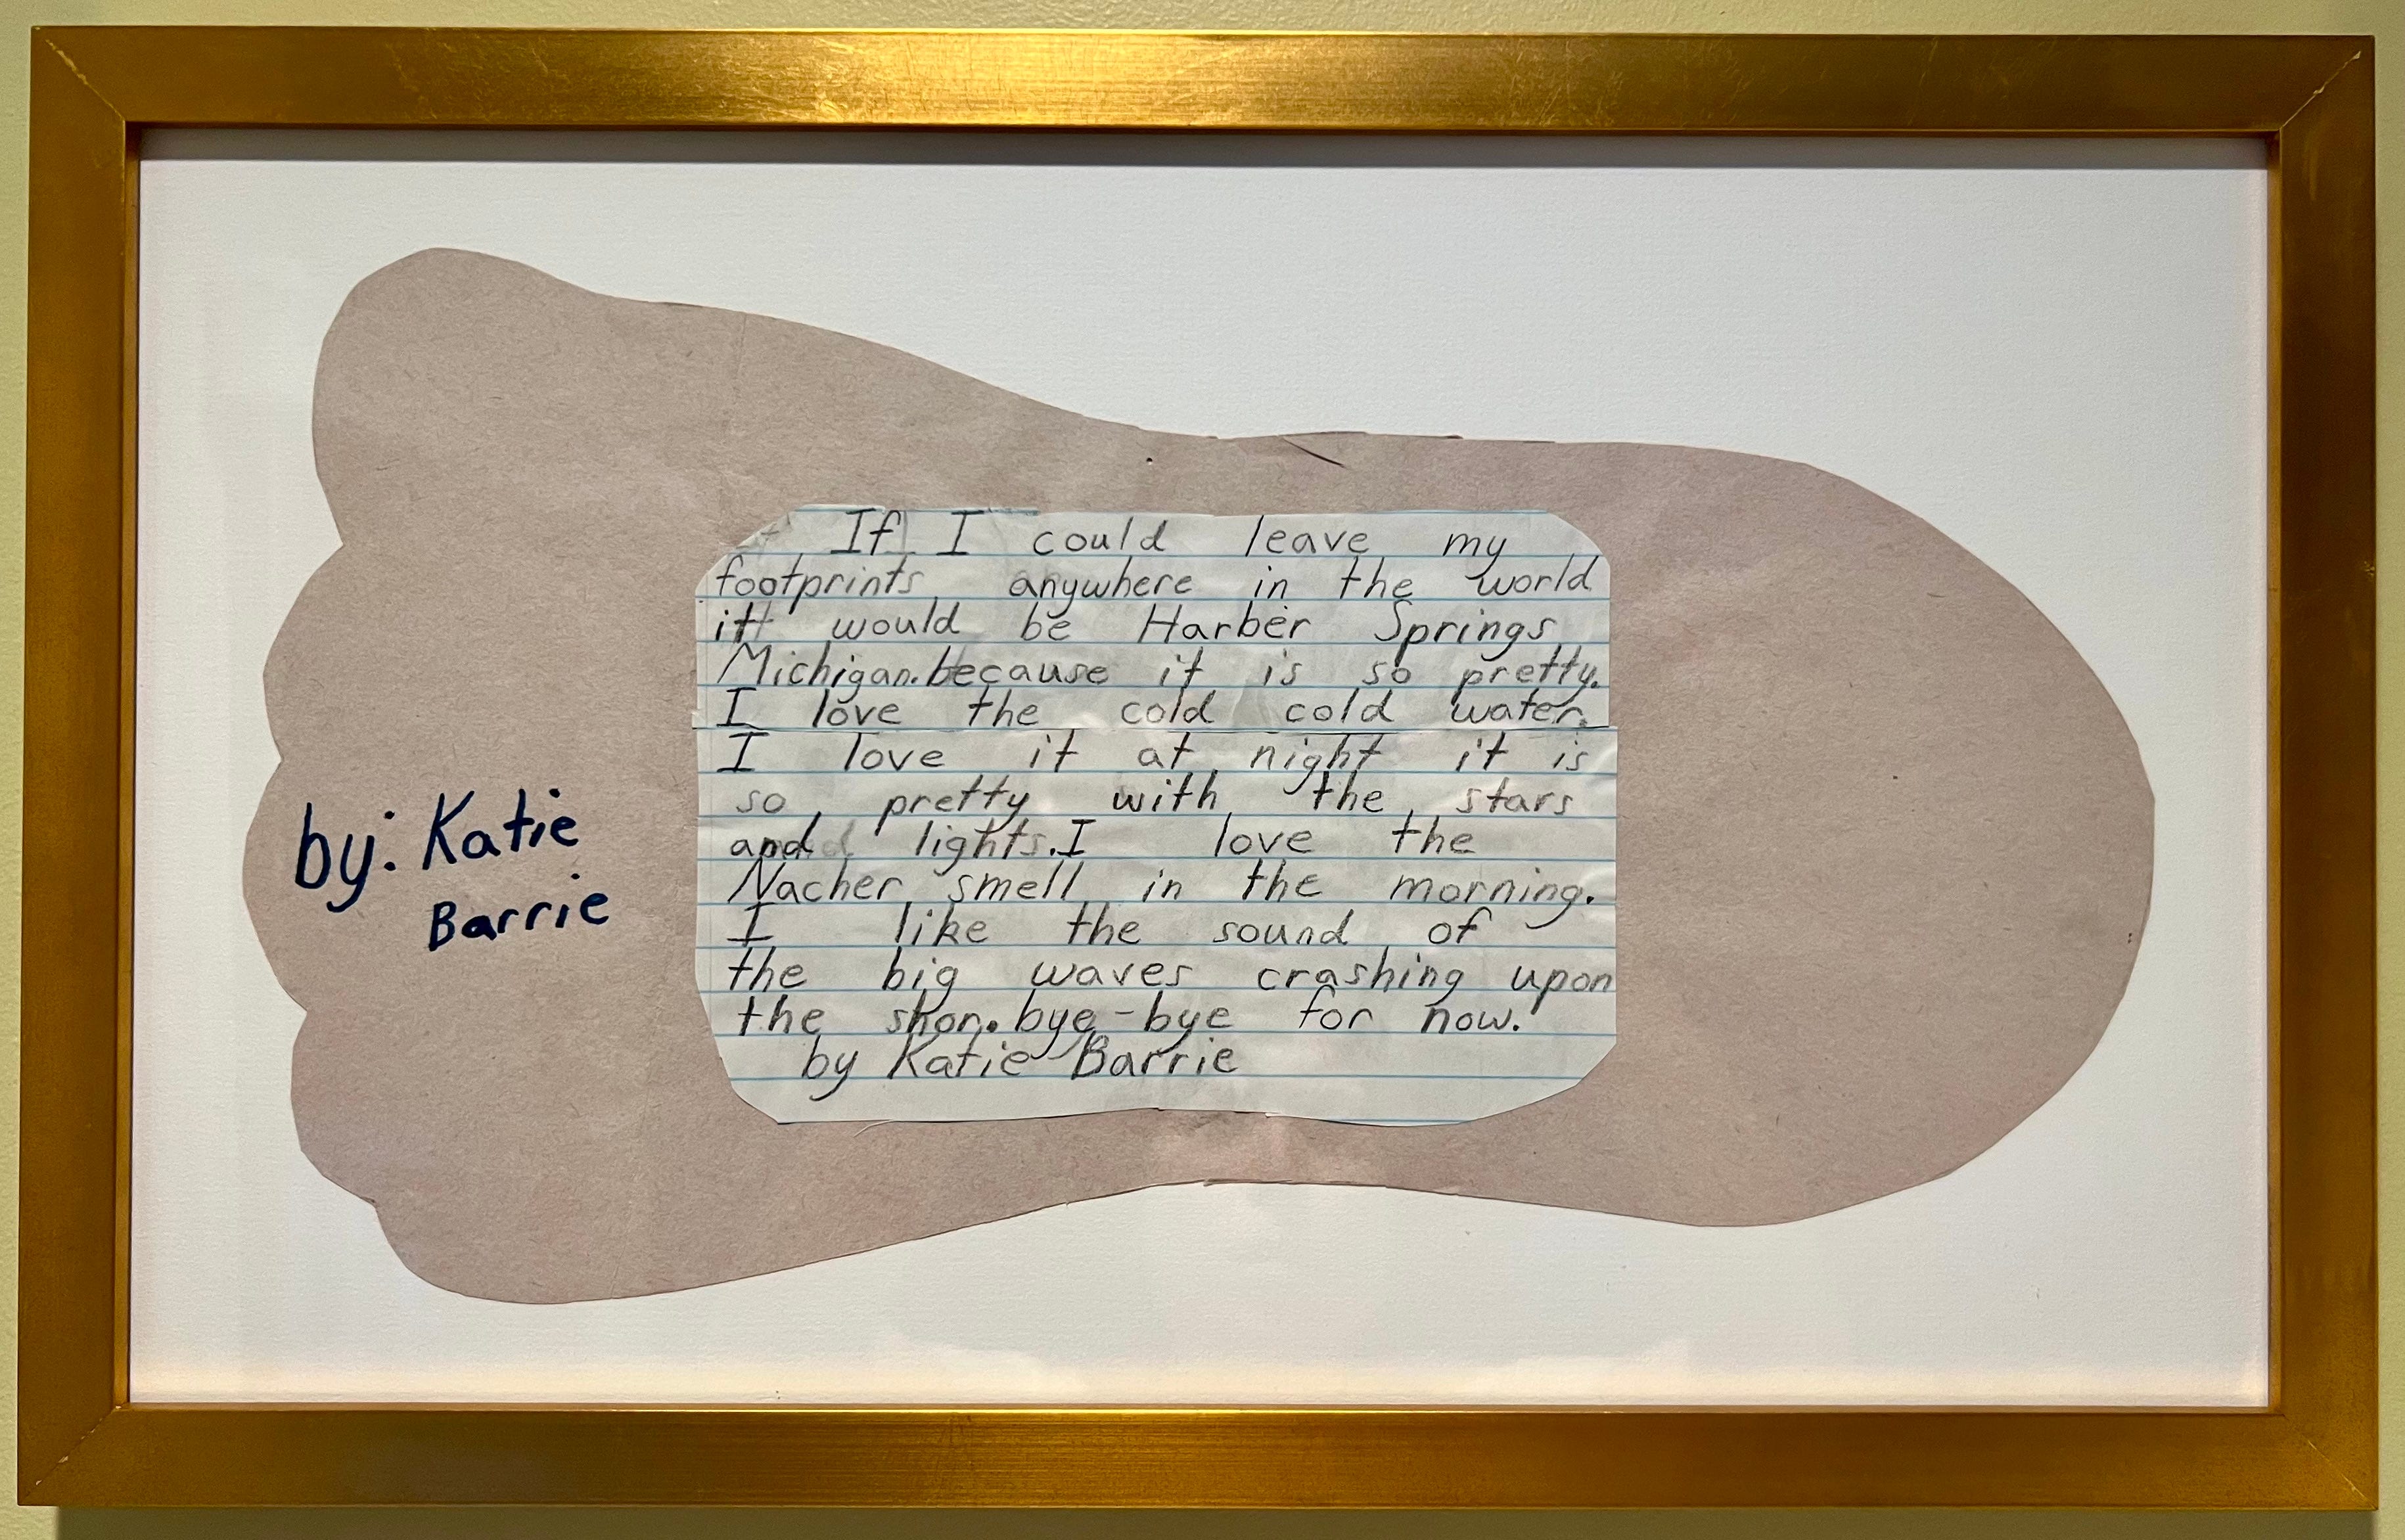 by: Katie
Barrie
If I could leave my
footprints anywhere in the world
it would be Harber Springs
Michigan. because it is so pretty.
I love the cold cold water.
I love it at night it is
so pretty with the stars
and lights. I love the
Nacher smell in the morning.
I like the sound of
the big waves crashing upon
the shor. bye-bye for now.
by Katie Barrie